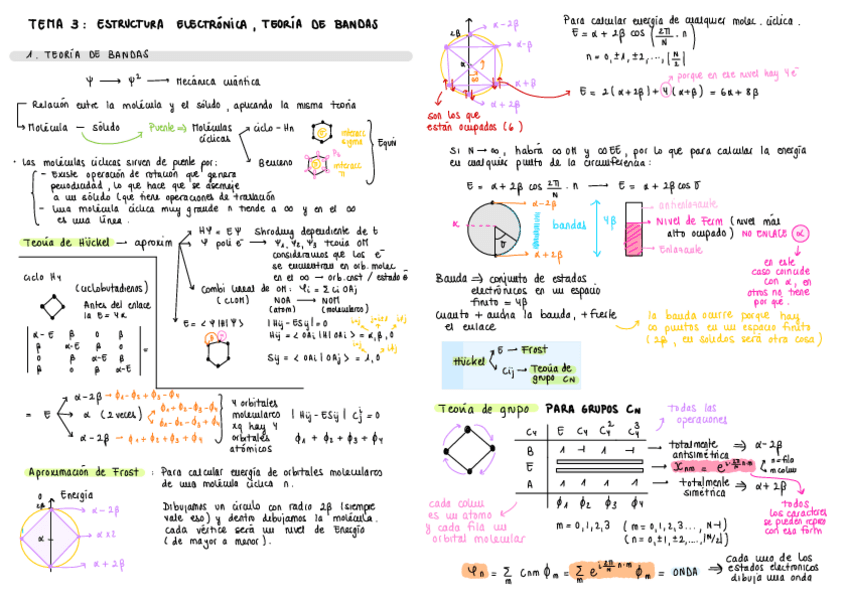 TEMA 3: ESTRUCTURA ELECTRÓNICA, TEORÍA DE BANDAS
1. TEORÍA DE BANDAS
Ψ → Ψ² → Mecánica cuántica
Relación entre la molécula y el sólido, aplicando la misma teoría
Molécula – sólido
Puente ⇒ Moléculas cíclicas
ciclo-Hn
interacc sigma
Benceno
interacc π
Equiv
· Las moléculas cíclicas sirven de puente por:
- Existe operación de rotación que genera
periodicidad, lo que hace que se asemeje
a un sólido (que tiene operaciones de traslación)
- Una molécula cíclica muy grande n tiende a ∞ y en el ∞
es una línea.
Teoría de Hückel → aproxim
HΨ = EΨ Shrodng dependiente de t
Ψ poli e⁻ → Ψ₁, Ψ₂, Ψ₃ teoría OM
consideramos que los e⁻
se encuentran en orb. molec
en el ∞ → orb. crist / estado ē
Combi lineal de OM: φi = Σ Ci OAj
(CLOM) NOA → NOM
(atom) (moleculares)
E = <Ψ|H|Ψ>
|Hij - ESij| = 0
Hij = <OAi|H|OAj> = α, β, 0
Sij = <OAi|OAj> = 1, 0
Ciclo H₄
(ciclobutadienos)
Antes del enlace
la E = 4α
α-E β 0 β
β α-E β 0
0 β α-E β
β 0 β α-E
=
= E
α-2β → ϕ₁-ϕ₂+ϕ₃-ϕ₄
α (2 veces)
ϕ₁+ϕ₂-ϕ₃-ϕ₄
ϕ₁-ϕ₂-ϕ₃+ϕ₄
α-2β → ϕ₁+ϕ₂+ϕ₃+ϕ₄
4 orbitales
moleculares
xq hay 4
orbitales
atómicos
|Hij - ESij| Cj = 0
ϕ₁ + ϕ₂ + ϕ₃ + ϕ₄
Aproximación de Frost : Para calcular energía de orbitales moleculares
de una molécula cíclica n.
Energía
2β
α
α - 2β
α x2
α + 2β
Dibujamos un círculo con radio 2β (siempre
vale eso) y dentro dibujamos la molécula.
cada vértice será un nivel de Energía
(de mayor a menor).
2β
α
α-2β
α-β
α+β
α+2β
son los que
están ocupados (6)
Para calcular energía de cualquier molec. cíclica.
E = α + 2β cos (2π/N · n)
n = 0, ±1, ±2, ..., |N/2|
porque en ese nivel hay 4e⁻
E = 2(α+2β) + 4(α+β) = 6α + 8β
Si N → ∞, habrá ∞ OM y ∞ EE, por lo que para calcular la energía
en cualquier punto de la circunferencia:
E = α + 2β cos 2π/N · n → E = α + 2β cos σ
α-2β
α
α+2β
bandas
4β
antienlazante
Nivel de Ferm (nivel más
alto ocupado) NO ENLACE α
Enlazante
en este
caso coincide
con α, en
otros no tiene
por que.
Banda ⇒ conjunto de estados
electrónicos en un espacio
finito = 4β
cuanto + ancha la banda, + fuerte
el enlace
la banda ocurre porque hay
∞ puntos en un espacio finito
(2β, en sólidos será otra cosa)
Hückel
E → Frost
Cij → Teoría de
grupo CN
Teoría de grupo PARA GRUPOS CN
todas las
operaciones
C₄ E C₄ C₄² C₄³
B 1 -1 1 -1
E
A 1 1 1 1
ϕ₁ ϕ₂ ϕ₃ ϕ₄
totalmente
antisimétrica ⇒ α-2β
χnm = e^(i·2π/N·n·m)
n=fila
m colum
totalmente
simétrica ⇒ α+2β
cada colum
es un átomo
y cada fila un
orbital molecular
m = 0,1,2,3 (m = 0,1,2,3..., N-1)
(n = 0,±1,±2,...,|N/2|)
todos
los caracteres
se pueden repres
con esa form
φn = Σm Cnm ϕm = Σm e^(i·2π/N·n·m) ϕm = ONDA ⇒
cada uno de los
estados electrónicos
dibuja una onda